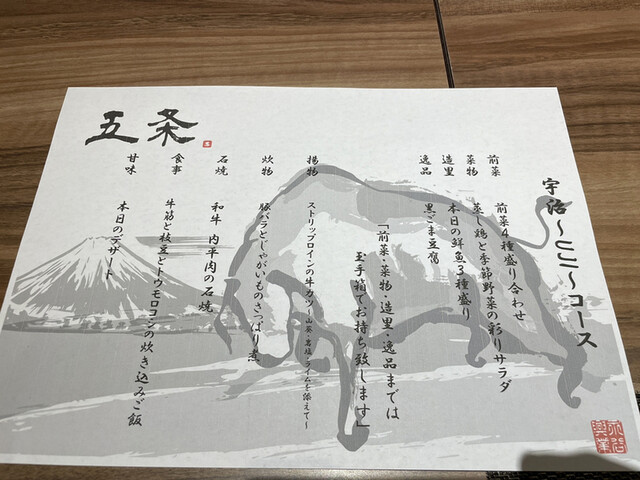 宇治〜UJI〜コース
前菜 前菜4種盛り合わせ
菜物 蒸し鶏と季節野菜の彩りサラダ
造里 本日の鮮魚3種盛り
逸品 黒ごま豆腐
「前菜・菜物・造里・逸品までは
玉手箱でお持ち致します」
揚物 ストリップロインの牛カツ〜山葵・岩塩・ライムを添えて〜
炊物 豚バラとじゃがいものさっぱり煮
石焼 和牛 内平肉の石焼
食事 牛筋と枝豆とトウモロコシの炊き込みご飯
甘味 本日のデザート
五条